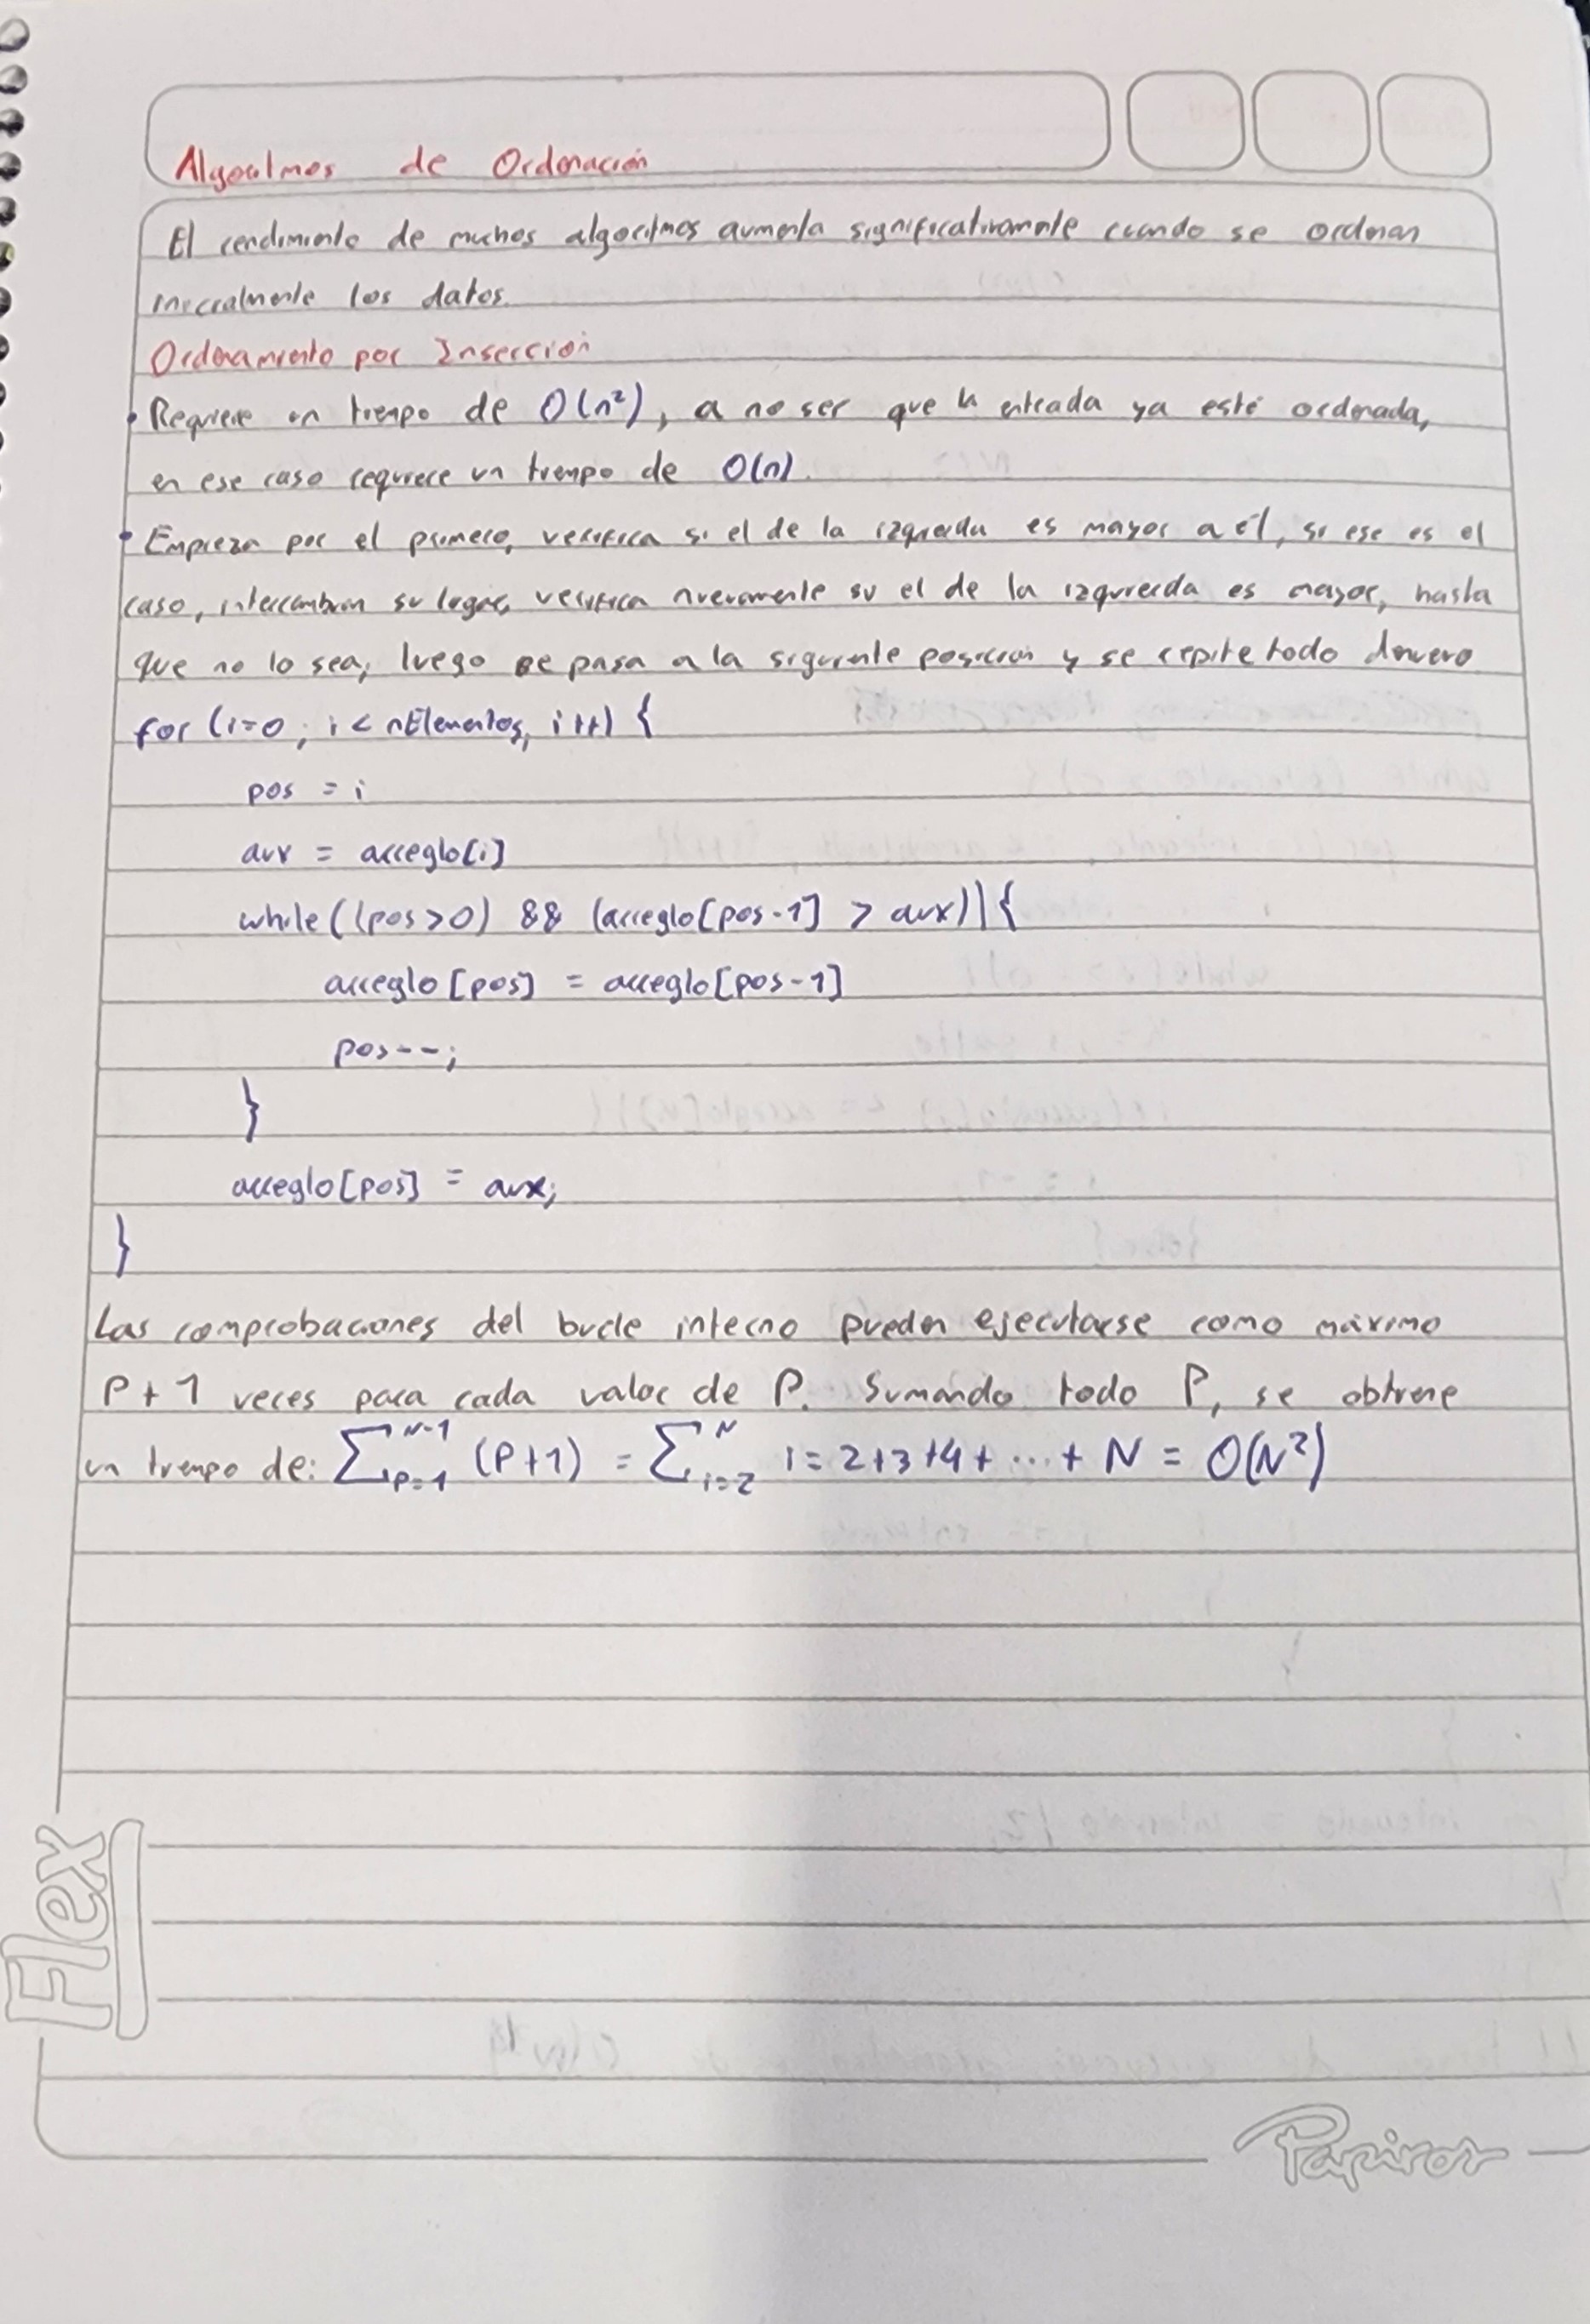 Algoritmos de Ordenación
El rendimiento de muchos algoritmos aumenta significativamente cuando se ordenan
inicialmente los datos.
Ordenamiento por Inserción
• Requiere un tiempo de O(n²), a no ser que la entrada ya esté ordenada,
en ese caso requiere un tiempo de O(n).
• Empieza por el primero, verifica si el de la izquierda es mayor a él, si ese es el
caso, intercambian su lugar, verifica nuevamente si el de la izquierda es mayor, hasta
que no lo sea, luego se pasa a la siguiente posición y se repite todo denuevo
for (i=0; i < nElementos, i++) {
pos = i
aux = arreglo[i]
while((pos>0) && (arreglo[pos-1] > aux)){
arreglo[pos] = arreglo[pos-1]
pos--;
}
arreglo[pos] = aux;
}
Las comprobaciones del bucle interno pueden ejecutarse como máximo
P+1 veces para cada valor de P. Sumando todo P, se obtiene
un tiempo de: ∑ᴺ⁻¹ₚ₌₁ (P+1) = ∑ᴺᵢ₌₂ i = 2+3+4+...+ N = O(N²)
Flex
Papiros